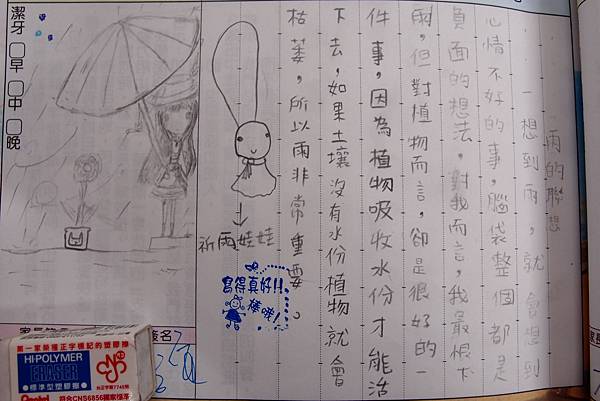 雨的聯想
一想到雨，就會想到
心情不好的事，腦袋整個都是
負面的想法，對我而言，我最恨下
雨，但對植物而言，卻是很好的一
件事，因為植物吸收水份才能活
下去，如果土壤沒有水份植物就會
枯萎，所以雨非常重要。
祈雨娃娃
寫得真好!!
棒哦!
潔牙□早□中□晚
第一家榮獲正字標記的塑膠擦
HI-POLYMER
ERASER
標準型塑膠擦
台正字第7745號
Pentel
符合CNS6856國家標準